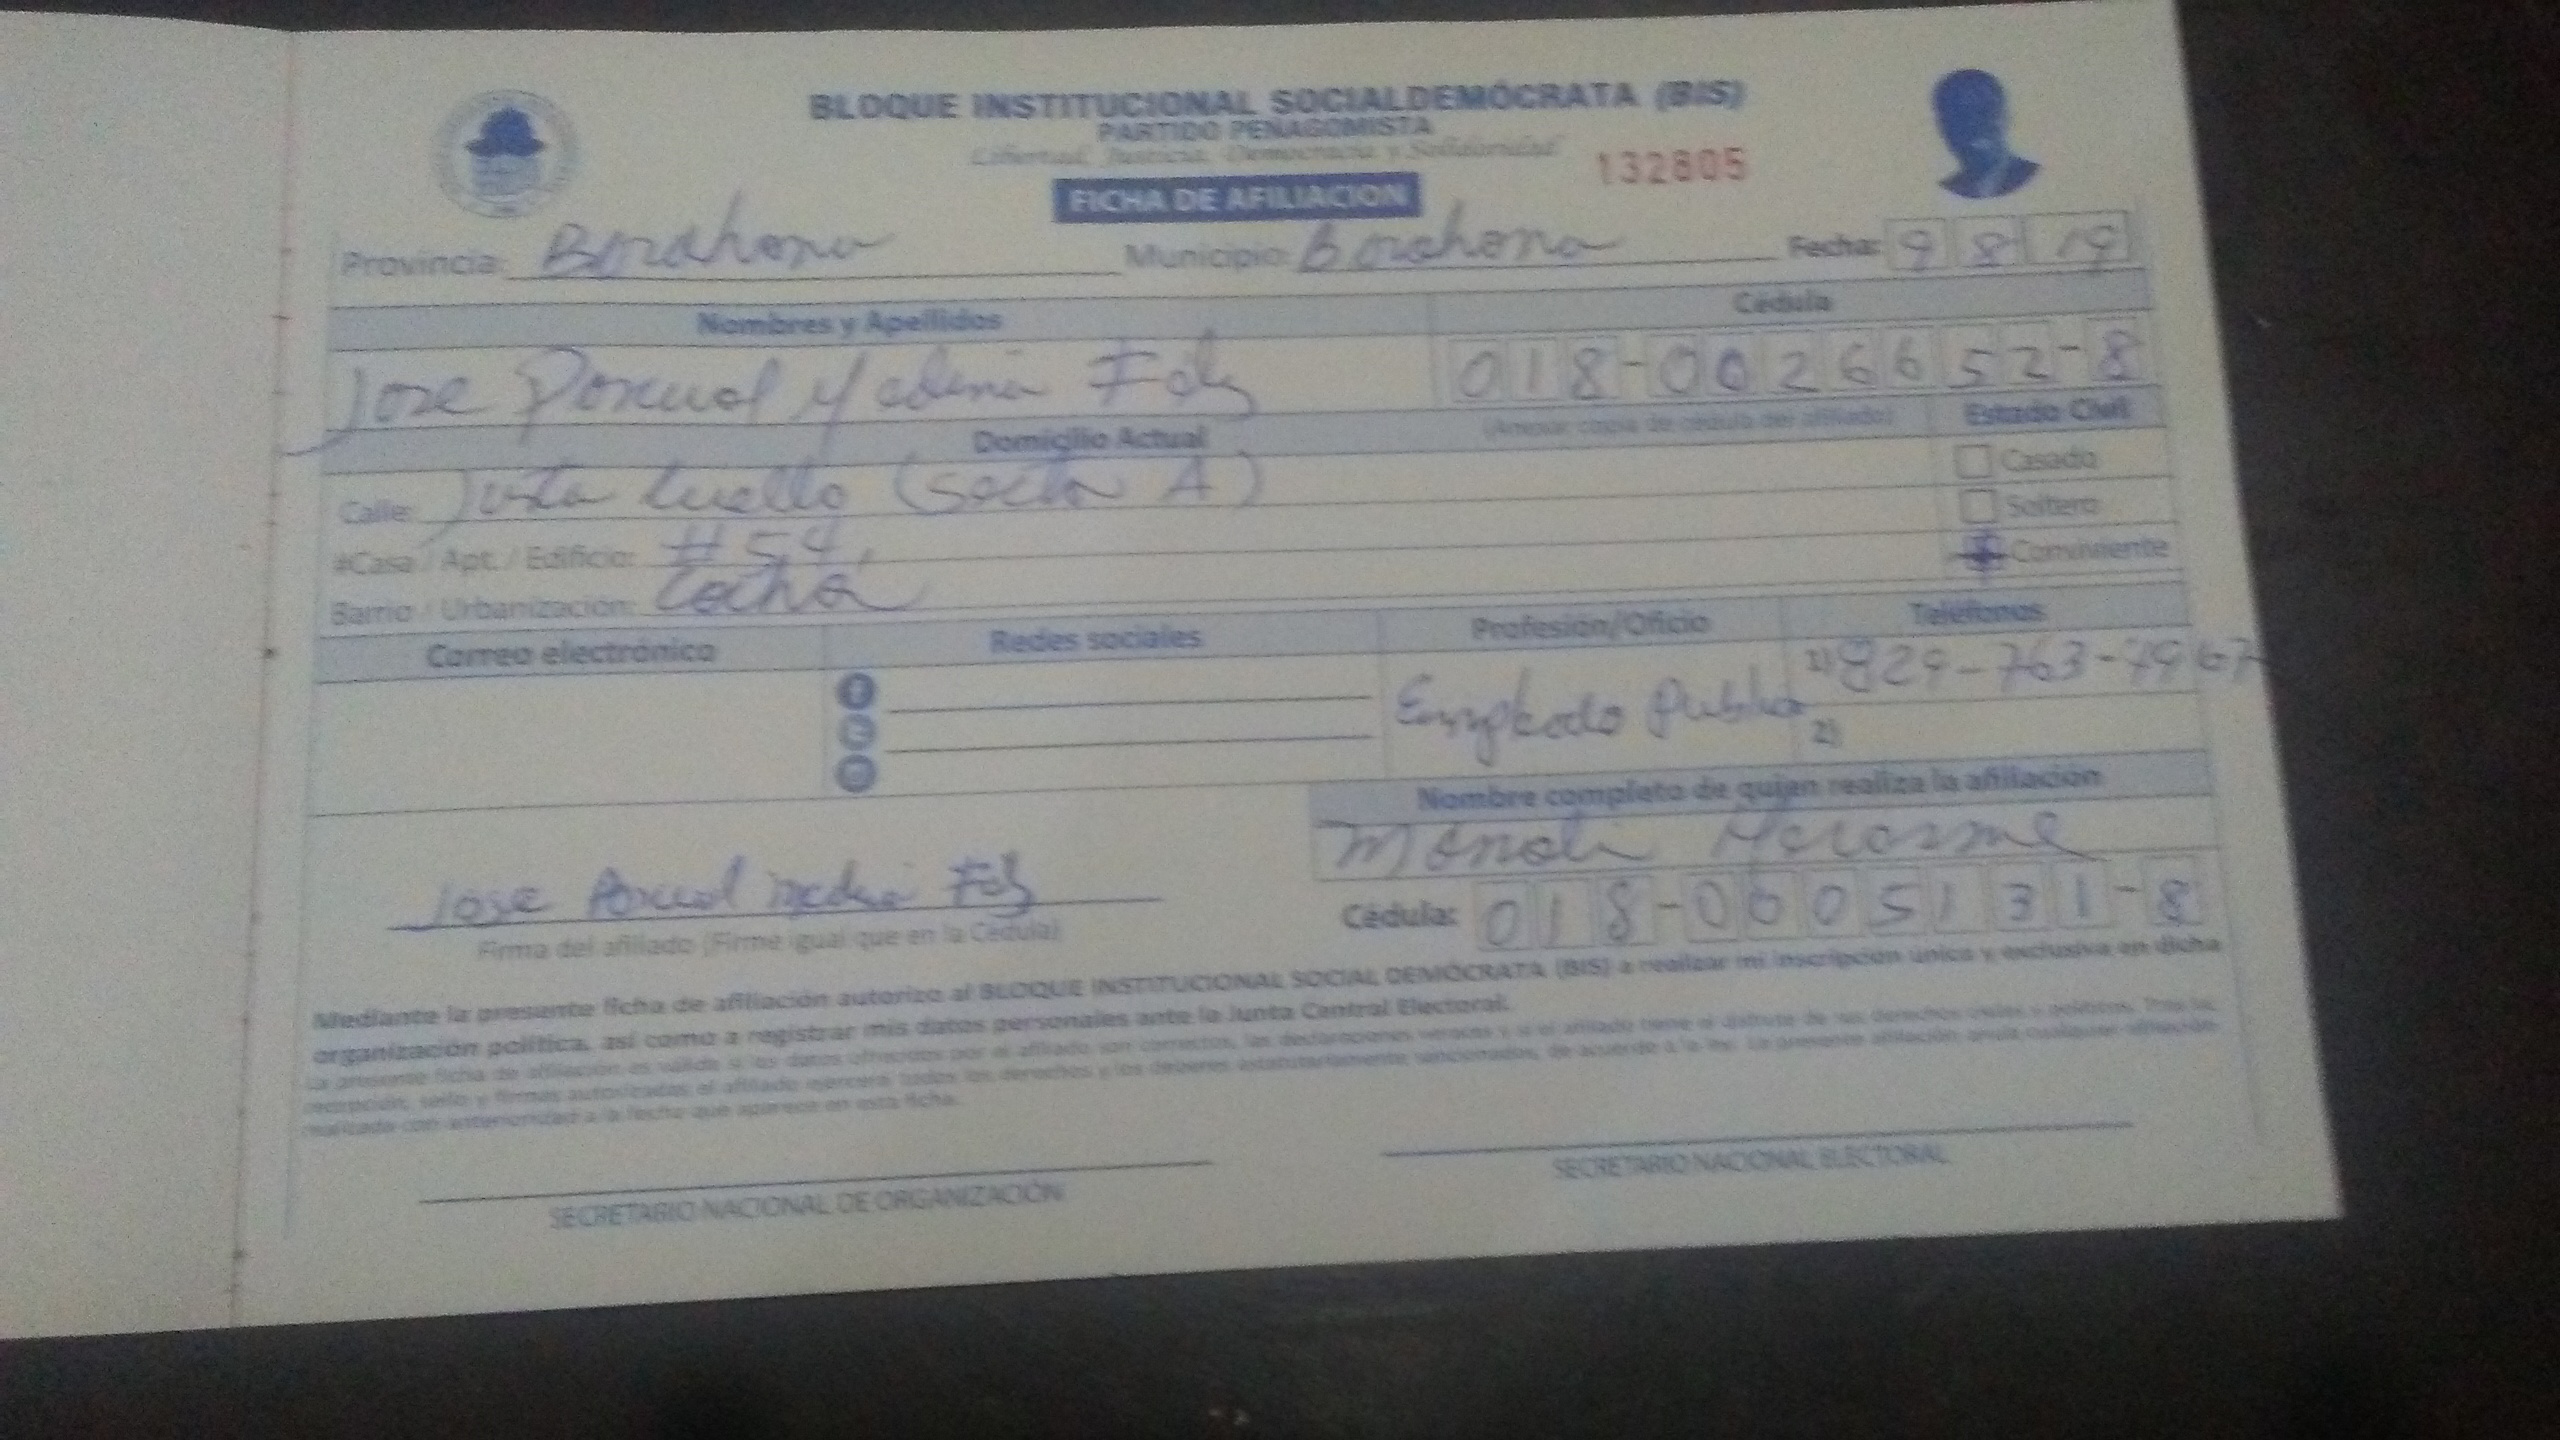 BLOQUE INSTITUCIONAL SOCIALDEMÓCRATA (BIS)
PARTIDO PEÑAGOMISTA
Libertad, Justicia, Democracia y Solidaridad
132805
FICHA DE AFILIACION
Provincia: Barahona Municipio: Barahona Fecha: 9 8 19
Nombres y Apellidos Cédula
Jose Pascual Medina Fdz 018-0026652-8
Domicilio Actual (Anexar copia de cédula del afiliado) Estado Civil
Calle: Justa Cuello (Sector A) Casado
Soltero
#Casa / Apt. / Edificio: #54, Conviviente
Barrio / Urbanización:
Correo electrónico Redes sociales Profesión/Oficio Teléfonos
Empleado Publico 1) 829-763-4967
2)
Nombre completo de quien realiza la afiliación
Jose Pascual medina Fdz
Firma del afiliado (Firme igual que en la Cédula) Cédula: 018-0005131-8
Mediante la presente ficha de afiliación autorizo al BLOQUE INSTITUCIONAL SOCIAL DEMÓCRATA (BIS) a realizar mi inscripción única y exclusiva en dicha
organización política, así como a registrar mis datos personales ante la Junta Central Electoral.
La presente ficha de afiliación es válida si los datos ofrecidos por el afiliado son correctos, las declaraciones veraces y si el afiliado tiene el disfrute de sus derechos civiles y políticos. Tras la
recepción, sello y firmas autorizadas, el afiliado ejercerá todos los derechos y los deberes estatutariamente sancionados, de acuerdo a la ley. La presente afiliación anula cualquier afiliación
realizada con anterioridad a la fecha que aparece en esta ficha.
SECRETARIO NACIONAL DE ORGANIZACIÓN SECRETARIO NACIONAL ELECTORAL